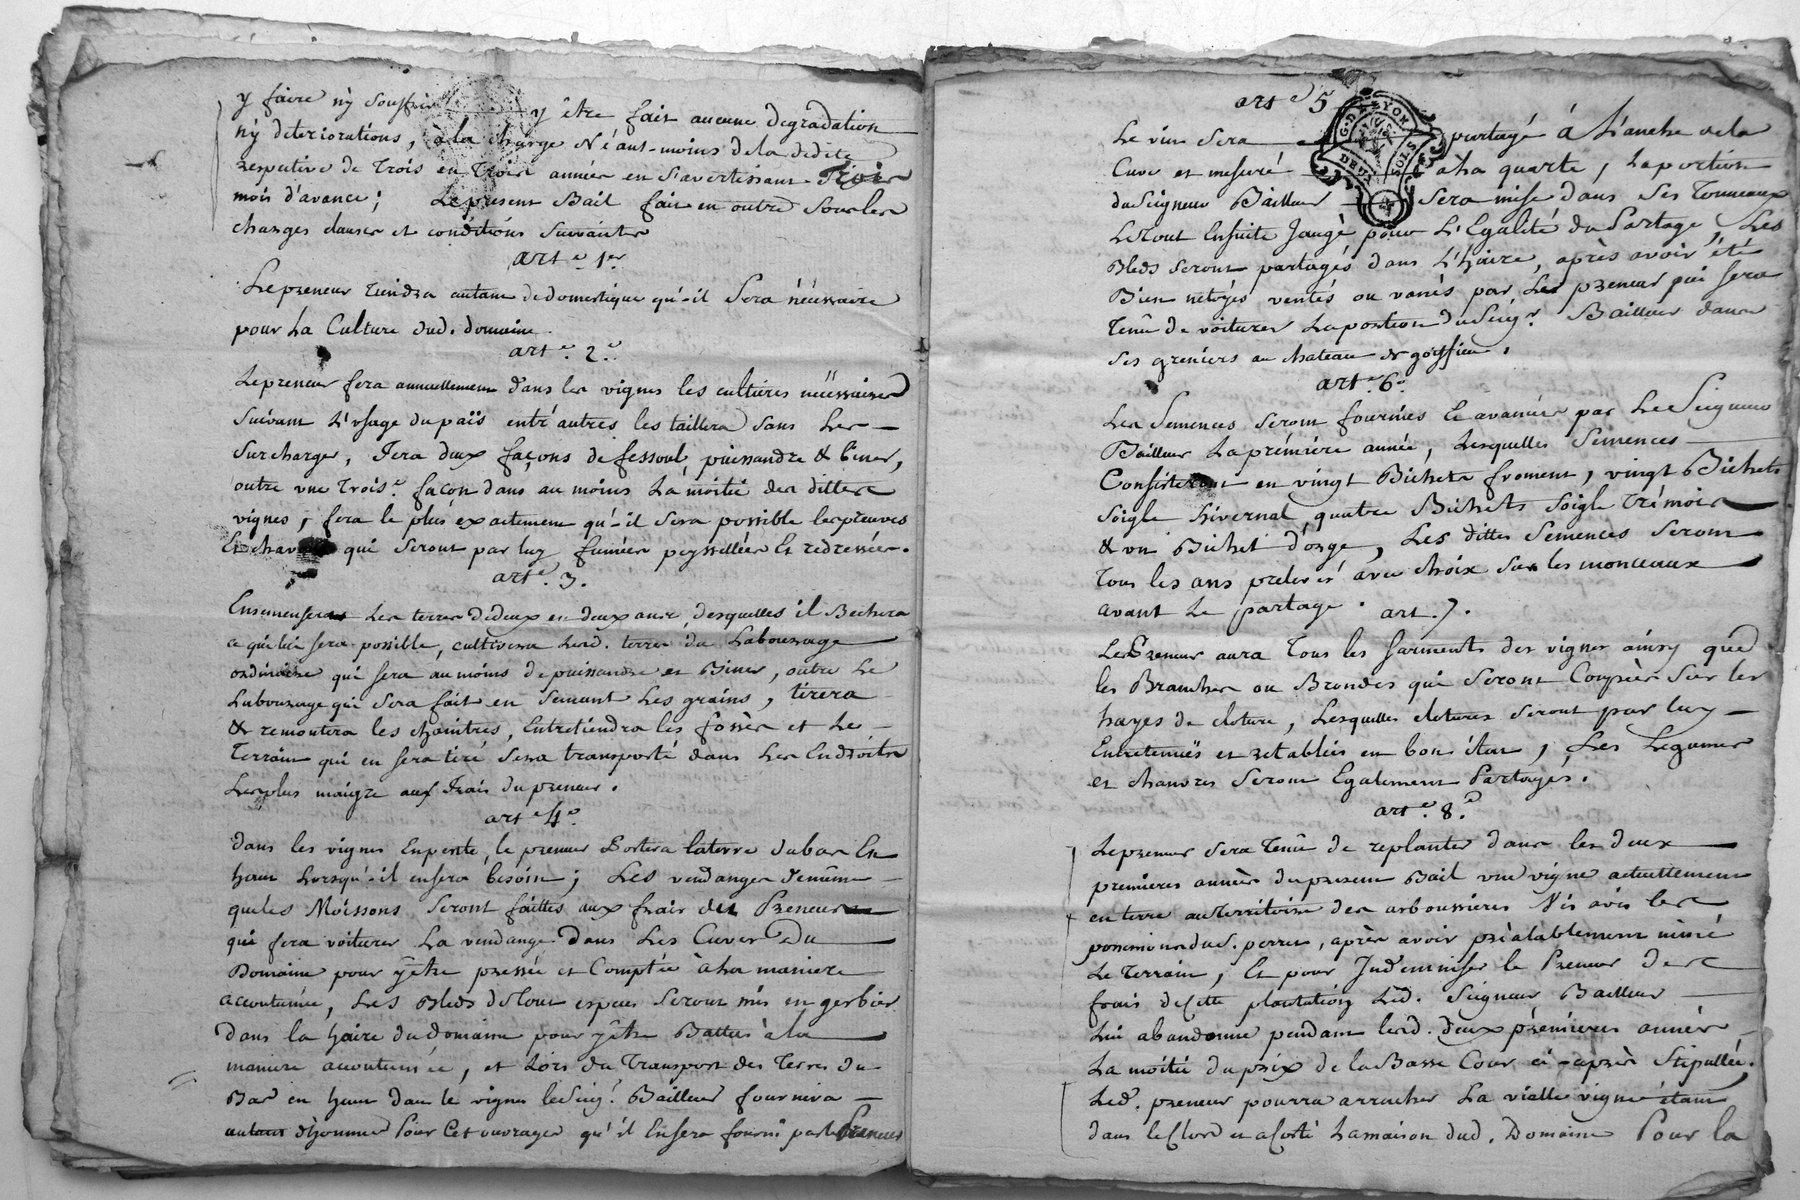 y faire n'y souffrir y être fait aucune degradation
n'y deteriorations, à la charge Néant-moins de la dedite
respective de Trois en Trois années en s'avertissant Trois
mois d'avance; Le present Bail fait en outre sous les
charges clauses et conditions suivantes
art.e 1.er
Le preneur tiendra autant de domestique qu'-il sera nécessaire
pour La Culture dud. domaine.
art.e 2.e
Le preneur fera annuellement dans les vignes les cultures nécessaires
suivant L'usage du païs entr'autres les taillera sans Les
surcharger, fera deux façons de fessoul, puissandre & biner,
outre une trois.e façon dans au moins La moitié des dittes
vignes, fera le plus exactement qu'-il sera possible les preuves
Et qui seront par luy fumées peyssellées Et redressées.
art.e 3.
Ensemensera Les terres de deux en deux ans, desquelles il Bechera
ce qui lui sera possible, cultivera lesd. terres du Labourage
ordinaire qui sera au moins de puissandre et Biner, outre Le
Labourage qui sera fait en semant Les grains, tirera
& remontera les chaintres, Entretiendra les fossés et Le
Terrain qui en sera tiré sera transporté dans Les Endroits
Les plus maigre aux frais du preneur.
art.e 4.e
dans les vignes En pente, le preneur Portera la terre du bas En
haut Lorsqu'-il en sera besoin; Les vendanges de même
que les Moissons seront faittes aux frais des Preneurs
qui fera voiturer La vendange dans Les Cuves Du
Domaine pour y être pressée et Comptée à La maniere
accoutumée, Les Bleds de tout especes seront mis en gerbier
dans la haire du domaine pour y être Battus à la
maniere accoutumée, et Lors du Transport des Terres du
Bas en haut dans le vignes le Seig.r Bailleur fournira
autant d'hommes Pour Cet ouvrages qu'il En sera fourni par le Preneurs
art.e 5
Le vin sera partagé à L'anche de la
Cuve et mesuré à La quarte, La portion
du Seigneur Bailleur sera mise dans ses Tonneaux
Le tout Ensuite Jaugé pour L'Egalité du Partage, Les
Bleds seront partagés dans L'haire, après avoir été
Bien netoyés ventés ou vanés par Le preneur qui sera
tenû de voiturer La portion du Seig.r Bailleur dans
ses greniers au chateau de goiffieu.
art.e 6.e
Les Semences seront fournies Et avancées par Le Seigneur
Bailleur La première année, Lesquelles Semences
Consisteront en vingt Bichets froment, vingt Bichets
soigle hivernal, quatre Bichets soigle Trémois
& un Bichet d'orge, Les dittes Semences seront
Tous les ans prelevés avec choix sur les monceaux
avant Le partage. art. 7.
Le Preneur aura Tous les sarments des vignes ainsy que
les Branches ou Brondes qui seront Coupées sur les
hayes de cloture, Lesquelles clotures seront par luy
Entretenües et retablies en bon état, Les Legumes
et chanvres seront Egalement Partagés.
art.e 8.e
Le preneur sera tenû de replanter dans les deux
premieres années du present Bail une vigne actuellement
en terre au territoire des arboussieres Vis avis les
possessions dud. perret, après avoir préalablement miné
Le Terrain, Et pour Indemniser le Preneur des
frais de Cette plantation Led. Seigneur Bailleur
Lui abandonne pendant lesd. deux prémieres années
La moitié du prix de la Basse Cour ci-après stipullée.
Led. preneur pourra arracher La vielle vigne étant
dans le Clos en a Côté La maison dud. Domaine Pour la
G. D. LYON.
DEUX SOLS